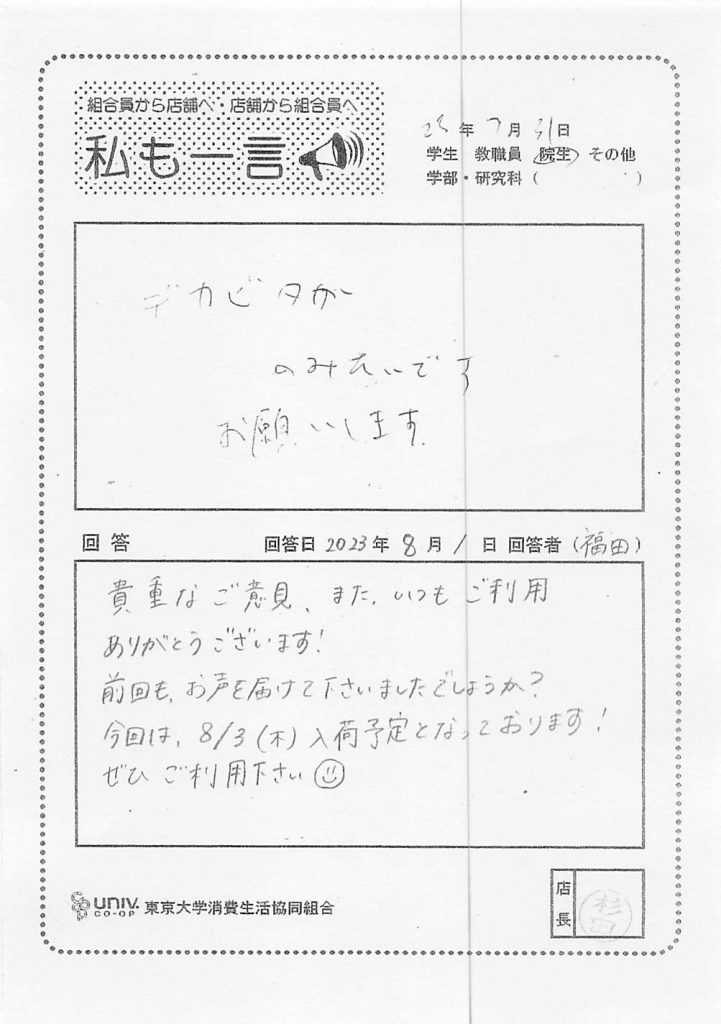 組合員から店舗へ・店舗から組合員へ
私も一言
23年7月31日
学生 教職員 院生 その他
学部・研究科( )
デカビタが
のみたいです
お願いします
回答 回答日 2023年 8月 1日 回答者(福田)
貴重なご意見、また、いつもご利用
ありがとうございます!
前回も、お声を届けて下さいましたでしょうか?
今回は、8/3(木)入荷予定となっております!
ぜひ ご利用下さい
UNIV. CO-OP 東京大学消費生活協同組合
店長